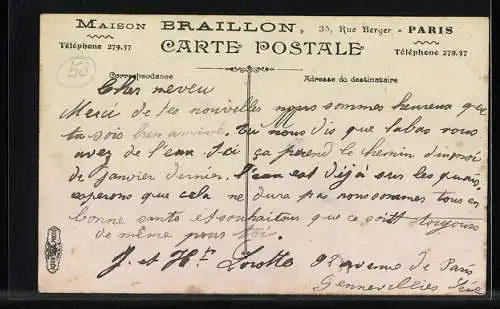 Maison BRAILLON, 35, Rue Berger - PARIS
Téléphone 279.37 CARTE POSTALE Téléphone 279.37
50
Correspondance Adresse du destinataire
Cher neveu
Merci de tes nouvelles nous sommes heureux que
tu sois bien arrivé. tu nous dis que labas vous
avez de l'eau ici ça prend le chemin
de janvier dernier. l'eau est déjà sur les quais
esperons que cela ne dura pas nous sommes tous en
bonne santé et souhaitons que ce soit toujours
de même pour toi.
J. et H. 92 avenue de Paris
Gennevilliers Seine